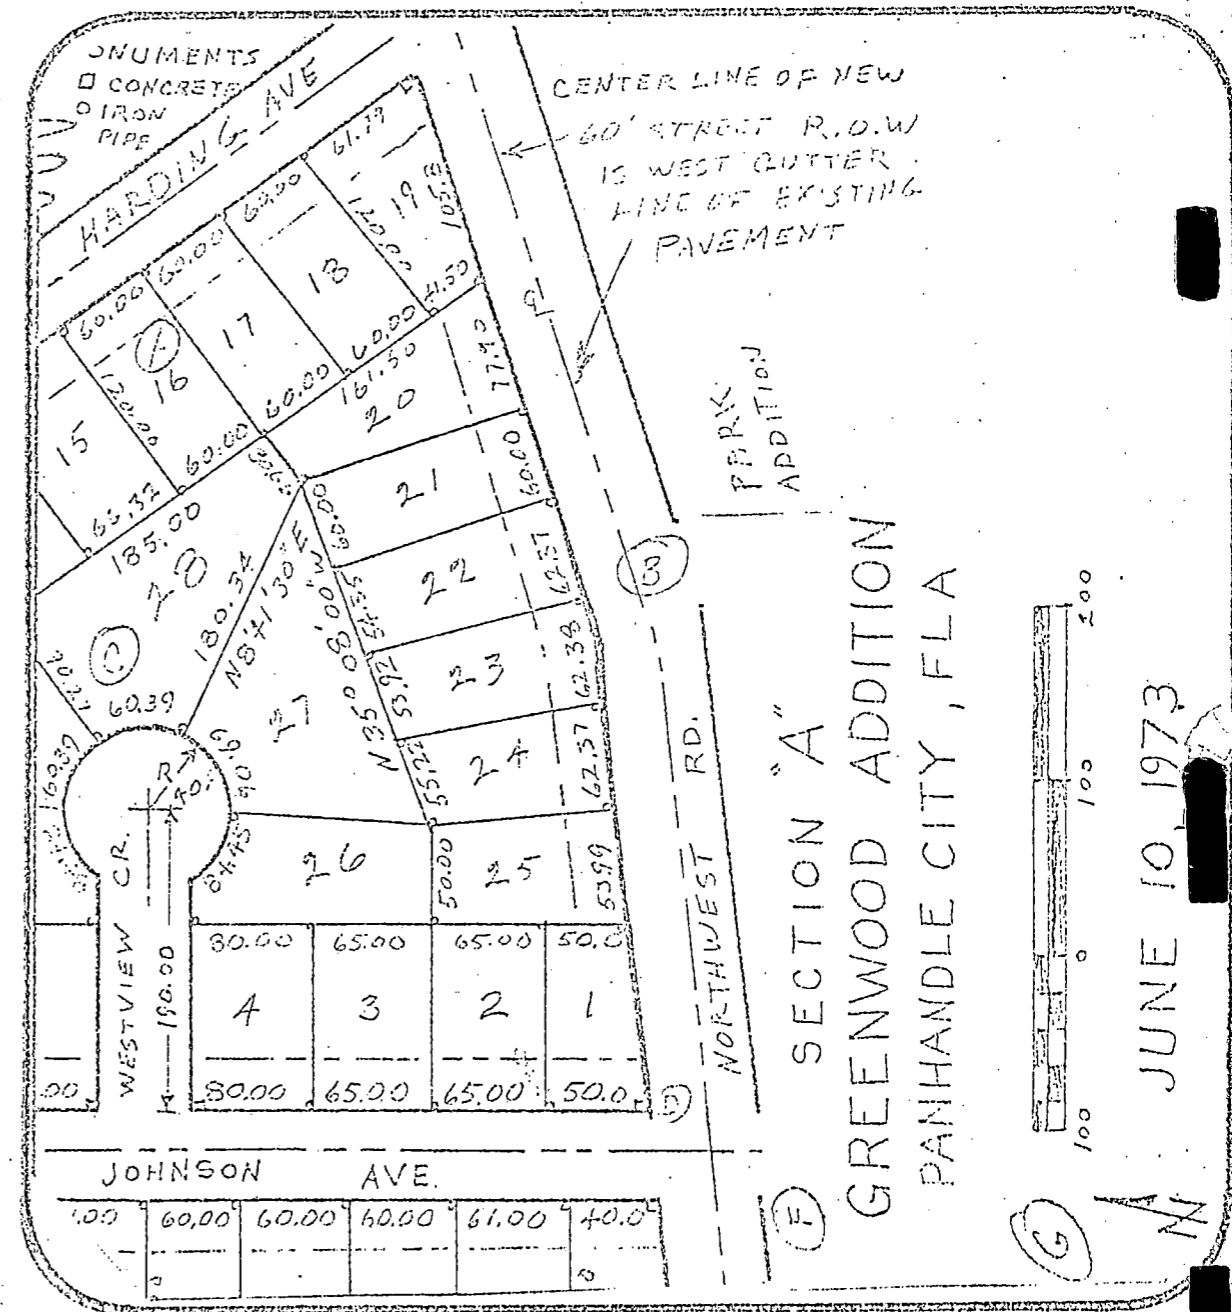 ONUMENTS
□ CONCRETE
○ IRON
PIPE
HARDING AVE
CENTER LINE OF NEW
60' STREET R.O.W
IS WEST GUTTER
LINE OF EXISTING
PAVEMENT
PARK
ADDITION
61.39
60.00
60.00
60.00
19
120.00
105.8
18
17
A
16
120.00
15
41.50
60.00
60.00
60.00
65.32
161.50
20
77.90
185.00
28
21
60.00
60.00
22
62.37
54.35
23
62.38
53.92
24
62.37
55.22
180.34
N8°41'30"E
N 35°08'00"W
27
90.27
60.39
60.39
69.06
R
40.0
84.45
26
50.00
25
53.99
B
WESTVIEW CR.
190.00
80.00
65.00
65.00
50.0
4
3
2
1
.00
80.00
65.00
65.00
50.0
D
NORTHWEST RD.
JOHNSON AVE.
.00
60.00
60.00
60.00
61.00
40.0
F
SECTION "A"
GREENWOOD ADDITION
PANHANDLE CITY, FLA
100
0
100
200
G
JUNE 10, 1973
N